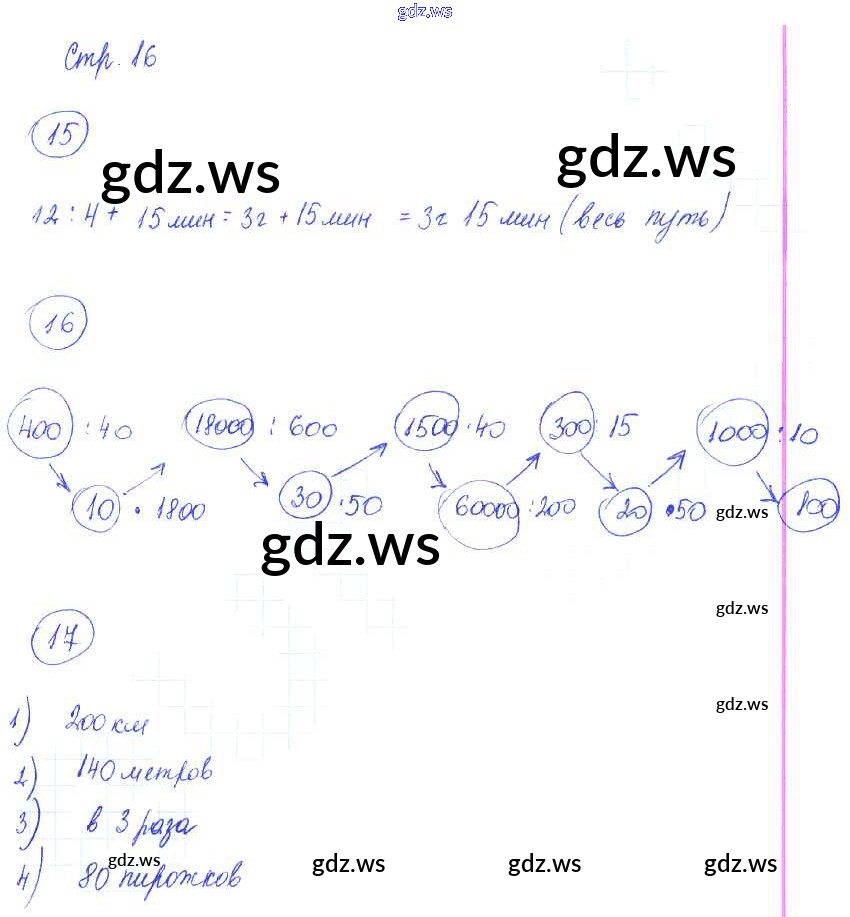 gdz.ws
Стр. 16
15
gdz.ws gdz.ws
12 : 4 + 15 мин = 3г + 15 мин = 3г 15 мин (весь путь)
16
400 : 40 18000 : 600 1500 · 40 300 : 15 1000 : 10
10 · 1800 30 · 50 60000 : 200 20 · 50 100
gdz.ws
gdz.ws
gdz.ws
17
gdz.ws
1) 200 км
2) 140 метров
3) в 3 раза
4) 80 пирожков
gdz.ws gdz.ws gdz.ws gdz.ws